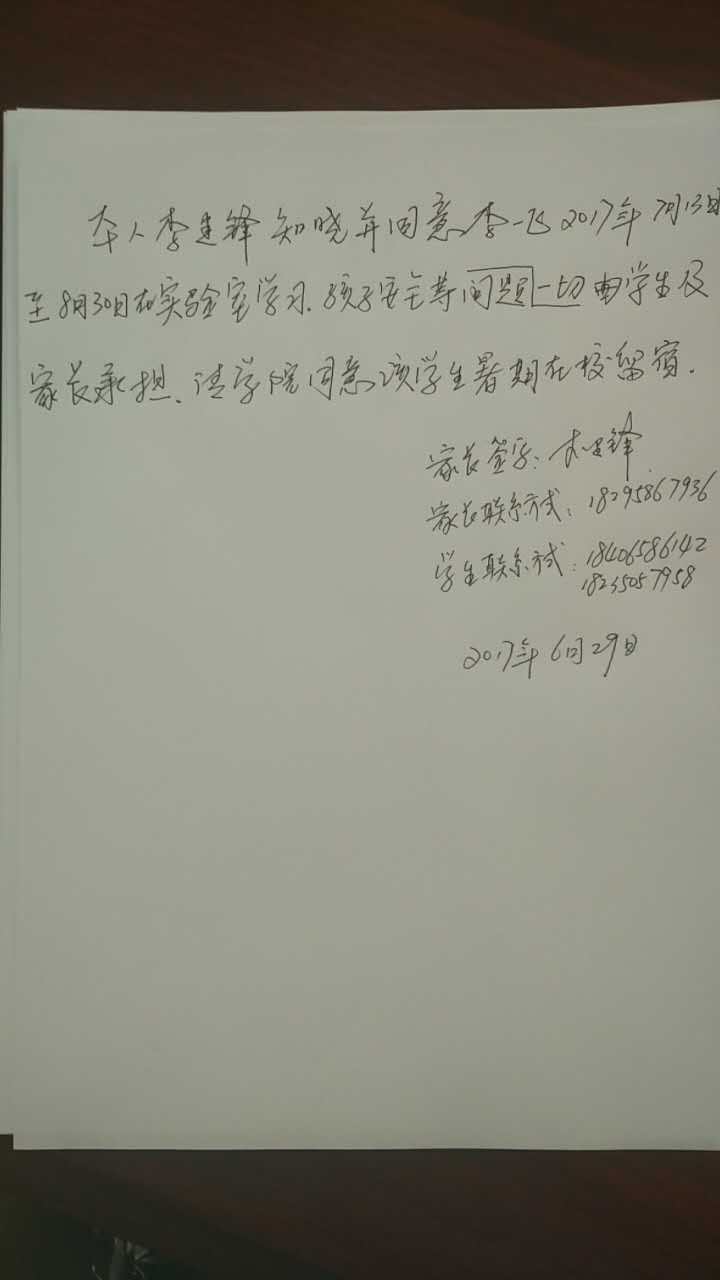 本人李建锋知晓并同意李一飞2017年7月13日
至8月30日在实验室学习.孩子安全等问题一切由学生及
家长承担、请学院同意该学生暑期在校留宿.
家长签字:李建锋
家长联系方式:18295867936
学生联系方式:18406586142
18235057958
2017年6月29日